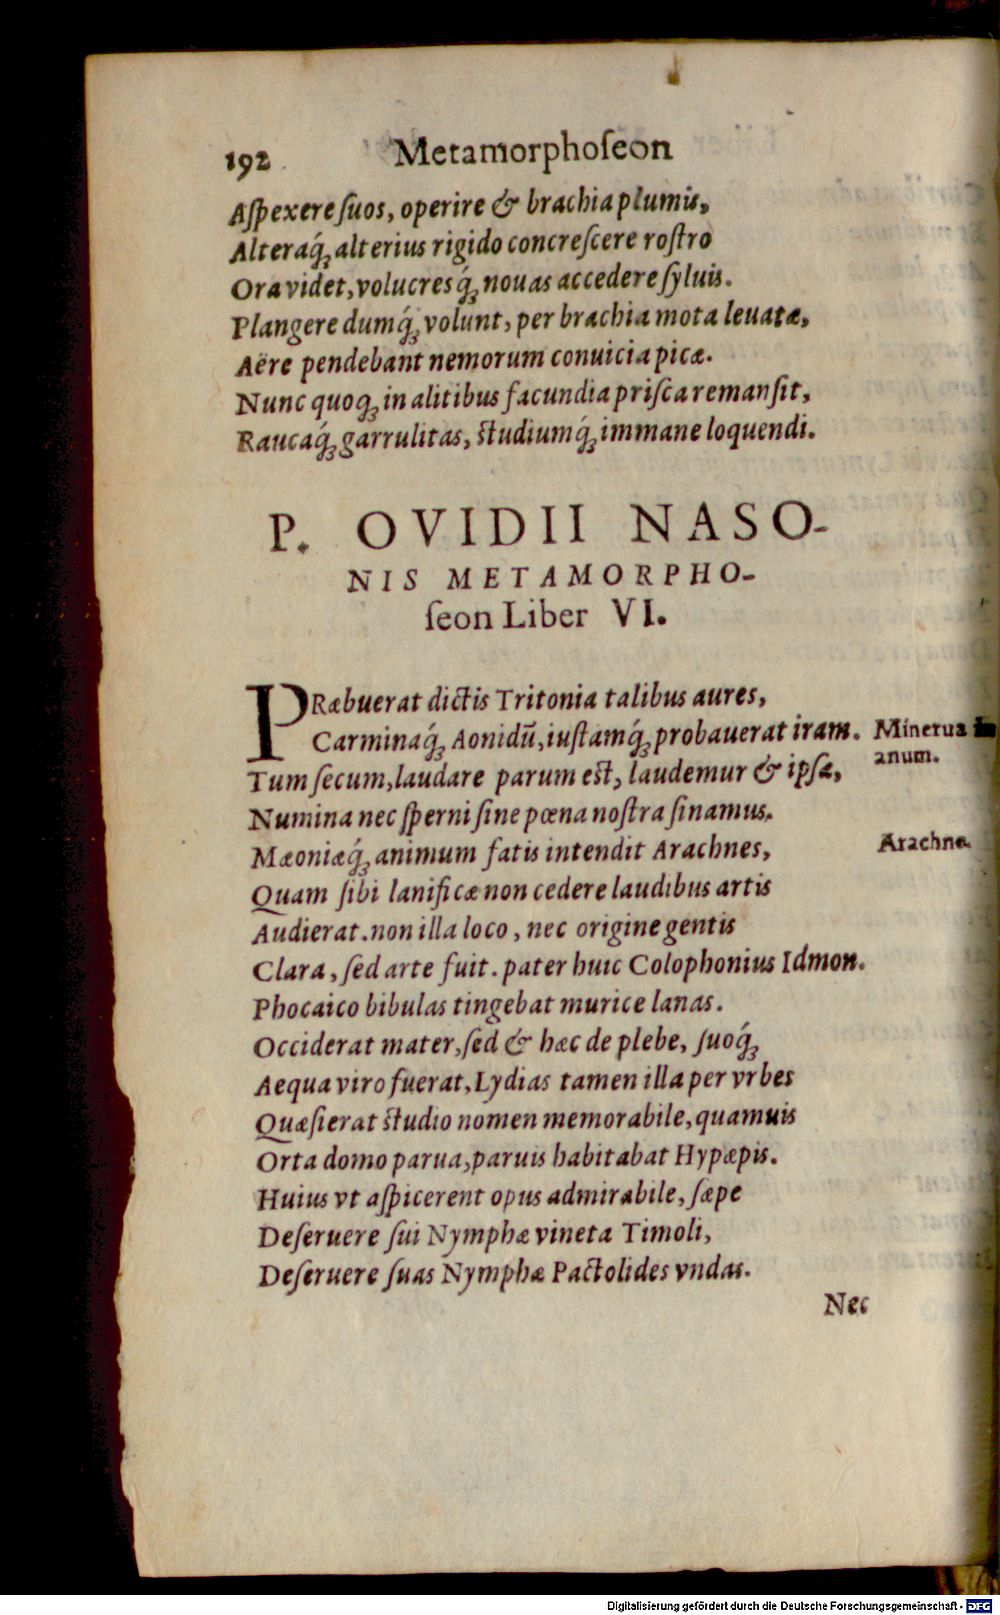 192 Metamorphoſeon
Aſpexere ſuos, operire & brachia plumis,
Alteraq́ꝫ alterius rigido concreſcere roſtro
Ora videt, volucresq́ꝫ nouas accedere ſyluis.
Plangere dumq́ꝫ volunt, per brachia mota leuatæ,
Aëre pendebant nemorum conuicia picæ.
Nunc quoqꝫ in alitibus facundia priſca remanſit,
Raucaq́ꝫ garrulitas, ſtudiumq́ꝫ immane loquendi.
P. OVIDII NASO-
NIS METAMORPHO-
ſeon Liber VI.
PRæbuerat dictis Tritonia talibus aures,
Carminaq́ꝫ Aonidū, iuſtamq́ꝫ probauerat iram. Minerua in
anum.
Tum ſecum, laudare parum eſt, laudemur & ipſæ,
Numina nec ſperni ſine pœna noſtra ſinamus.
Mæoniæq́ꝫ animum fatis intendit Arachnes, Arachne.
Quam ſibi lanificæ non cedere laudibus artis
Audierat. non illa loco, nec origine gentis
Clara, ſed arte fuit. pater huic Colophonius Idmon.
Phocaico bibulas tingebat murice lanas.
Occiderat mater, ſed & hæc de plebe, ſuoq́ꝫ
Aequa viro fuerat, Lydias tamen illa per vrbes
Quæſierat ſtudio nomen memorabile, quamuis
Orta domo parua, paruis habitabat Hypæpis.
Huius vt aſpicerent opus admirabile, ſæpe
Deſeruere ſui Nymphæ vineta Timoli,
Deſeruere ſuas Nymphæ Pactolides vndas.
Nec
Digitalisierung gefördert durch die Deutsche Forschungsgemeinschaft - DFG